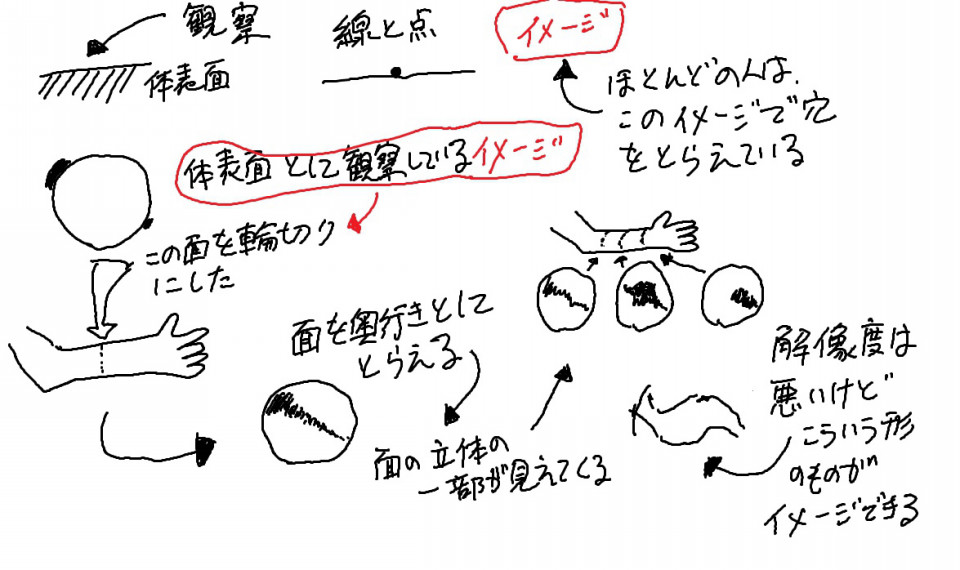 観察
体表面
線と点
イメージ
ほとんどの人は、
このイメージで穴
をとらえている
体表面として観察しているイメージ
この面を輪切り
にした
面を奥行きとして
とらえる
面の立体の
一部が見えてくる
解像度は
悪いけど
こういう形
のものが
イメージできる